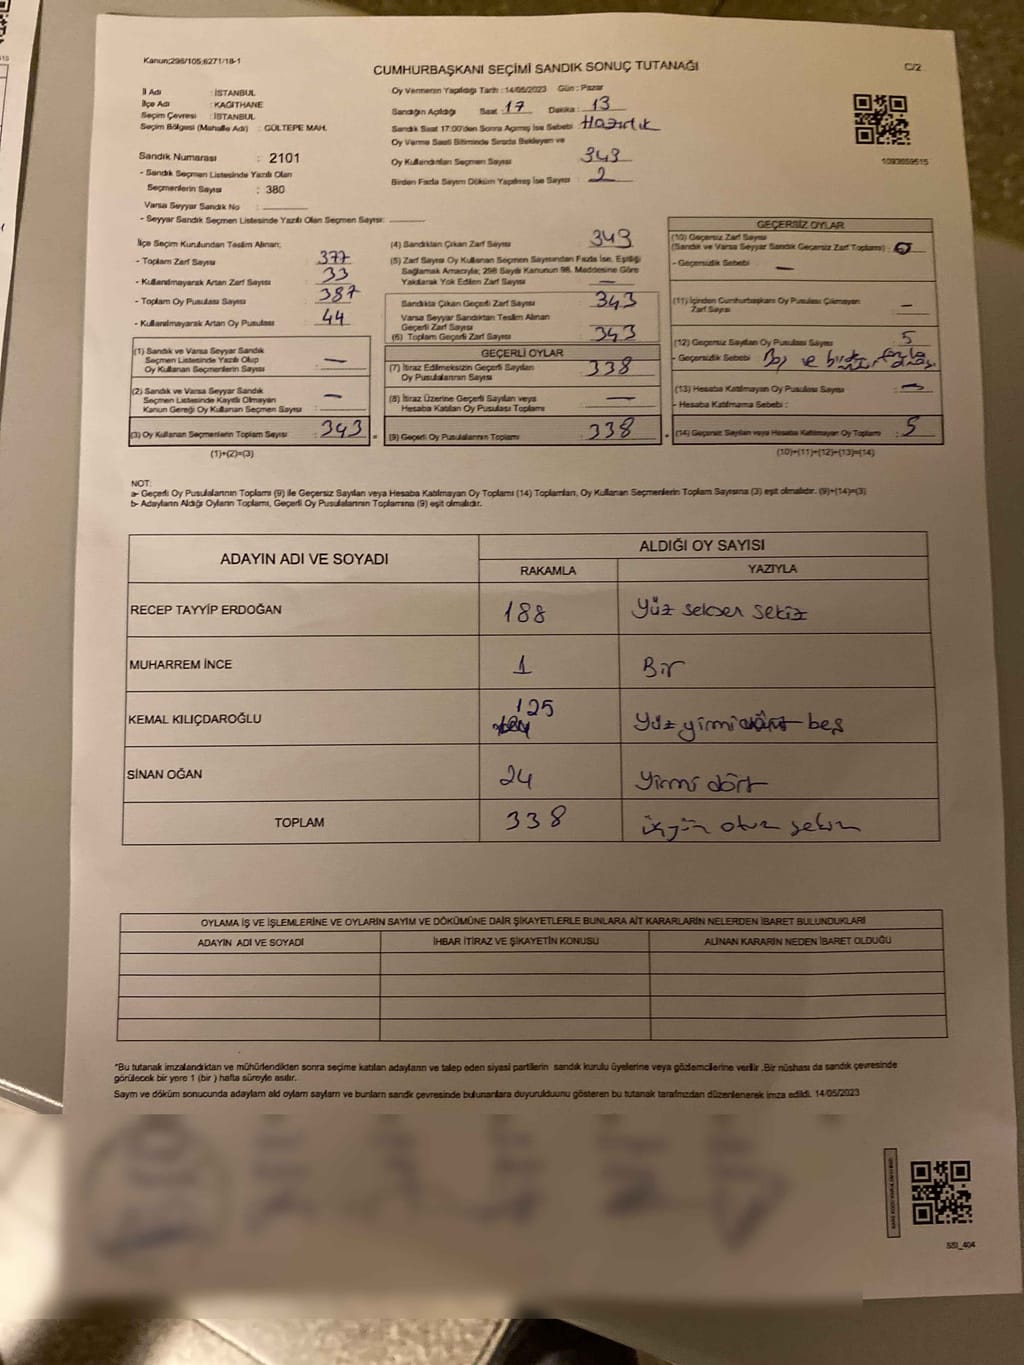 Kanun:296/105;6271/18-1
CUMHURBAŞKANI SEÇİMİ SANDIK SONUÇ TUTANAĞI
C/2
İl Adı : İSTANBUL
İlçe Adı : KAĞITHANE
Seçim Çevresi : İSTANBUL
Seçim Bölgesi (Mahalle Adı) : GÜLTEPE MAH.
Sandık Numarası : 2101
- Sandık Seçmen Listesinde Yazılı Olan
Seçmenlerin Sayısı : 380
Varsa Seyyar Sandık No :
- Seyyar Sandık Seçmen Listesinde Yazılı Olan Seçmen Sayısı:
Oy Vermenin Yapıldığı Tarih : 14/05/2023 Gün : Pazar
Sandığın Açıldığı Saat : 17 Dakika : 13
Sandık Saat 17:00'den Sonra Açılmış İse Sebebi : Hazırlık
Oy Verme Saati Bitiminde Sırada Bekleyen ve
Oy Kullandırılan Seçmen Sayısı : 343
Birden Fazla Sayım Döküm Yapılmış İse Sayısı : 2
1093659515
İlçe Seçim Kurulundan Teslim Alınan;
- Toplam Zarf Sayısı : 377
- Kullanılmayarak Artan Zarf Sayısı : 33
- Toplam Oy Pusulası Sayısı : 387
- Kullanılmayarak Artan Oy Pusulası : 44
(1) Sandık ve Varsa Seyyar Sandık
Seçmen Listesinde Yazılı Olup
Oy Kullanan Seçmenlerin Sayısı : —
(2) Sandık ve Varsa Seyyar Sandık
Seçmen Listesinde Kayıtlı Olmayan
Kanun Gereği Oy Kullanan Seçmen Sayısı : —
(3) Oy Kullanan Seçmenlerin Toplam Sayısı : 343
(1)+(2)=(3)
(4) Sandıktan Çıkan Zarf Sayısı : 343
(5) Zarf Sayısı Oy Kullanan Seçmen Sayısından Fazla İse, Eşitliği
Sağlamak Amacıyla; 298 Sayılı Kanunun 98. Maddesine Göre
Yakılarak Yok Edilen Zarf Sayısı : —
Sandıkta Çıkan Geçerli Zarf Sayısı : 343
Varsa Seyyar Sandıktan Teslim Alınan
Geçerli Zarf Sayısı :
(6) Toplam Geçerli Zarf Sayısı : 343
GEÇERLİ OYLAR
(7) İtiraz Edilmeksizin Geçerli Sayılan
Oy Pusulalarının Sayısı : 338
(8) İtiraz Üzerine Geçerli Sayılan veya
Hesaba Katılan Oy Pusulası Toplamı : —
(9) Geçerli Oy Pusulalarının Toplamı : 338
GEÇERSİZ OYLAR
(10) Geçersiz Zarf Sayısı
(Sandık ve Varsa Seyyar Sandık Geçersiz Zarf Toplamı) :
- Geçersizlik Sebebi : —
(11) İçinden Cumhurbaşkanı Oy Pusulası Çıkmayan
Zarf Sayısı : —
(12) Geçersiz Sayılan Oy Pusulası Sayısı : 5
- Geçersizlik Sebebi : Boş ve birden fazla
(13) Hesaba Katılmayan Oy Pusulası Sayısı : —
- Hesaba Katılmama Sebebi :
(14) Geçersiz Sayılan veya Hesaba Katılmayan Oy Toplamı : 5
(10)+(11)+(12)+(13)=(14)
NOT:
a- Geçerli Oy Pusulalarının Toplamı (9) ile Geçersiz Sayılan veya Hesaba Katılmayan Oy Toplamı (14) Toplamları, Oy Kullanan Seçmenlerin Toplam Sayısına (3) eşit olmalıdır. (9)+(14)=(3)
b- Adayların Aldığı Oyların Toplamı, Geçerli Oy Pusulalarının Toplamına (9) eşit olmalıdır.
ADAYIN ADI VE SOYADI
ALDIĞI OY SAYISI
RAKAMLA YAZIYLA
RECEP TAYYİP ERDOĞAN 188 Yüz seksen sekiz
MUHARREM İNCE 1 Bir
KEMAL KILIÇDAROĞLU 125 Yüz yirmi dört beş
SİNAN OĞAN 24 Yirmi dört
TOPLAM 338 üçyüz otuz sekiz
OYLAMA İŞ VE İŞLEMLERİNE VE OYLARIN SAYIM VE DÖKÜMÜNE DAİR ŞİKAYETLERLE BUNLARA AİT KARARLARIN NELERDEN İBARET BULUNDUKLARI
ADAYIN ADI VE SOYADI İHBAR İTİRAZ VE ŞİKAYETİN KONUSU ALINAN KARARIN NEDEN İBARET OLDUĞU
*Bu tutanak imzalandıktan ve mühürlendikten sonra seçime katılan adayların ve talep eden siyasi partilerin sandık kurulu üyelerine veya gözlemcilerine verilir .Bir nüshası da sandık çevresinde
görülecek bir yere 1 (bir ) hafta süreyle asılır.
Sayım ve döküm sonucunda adayların aldı oyların sayıların ve bunların sandk çevresinde bulunanlara duyurulduunu gösteren bu tutanak tarafmızdan düzenlenerek imza edildi. 14/05/2023
SSİ_404